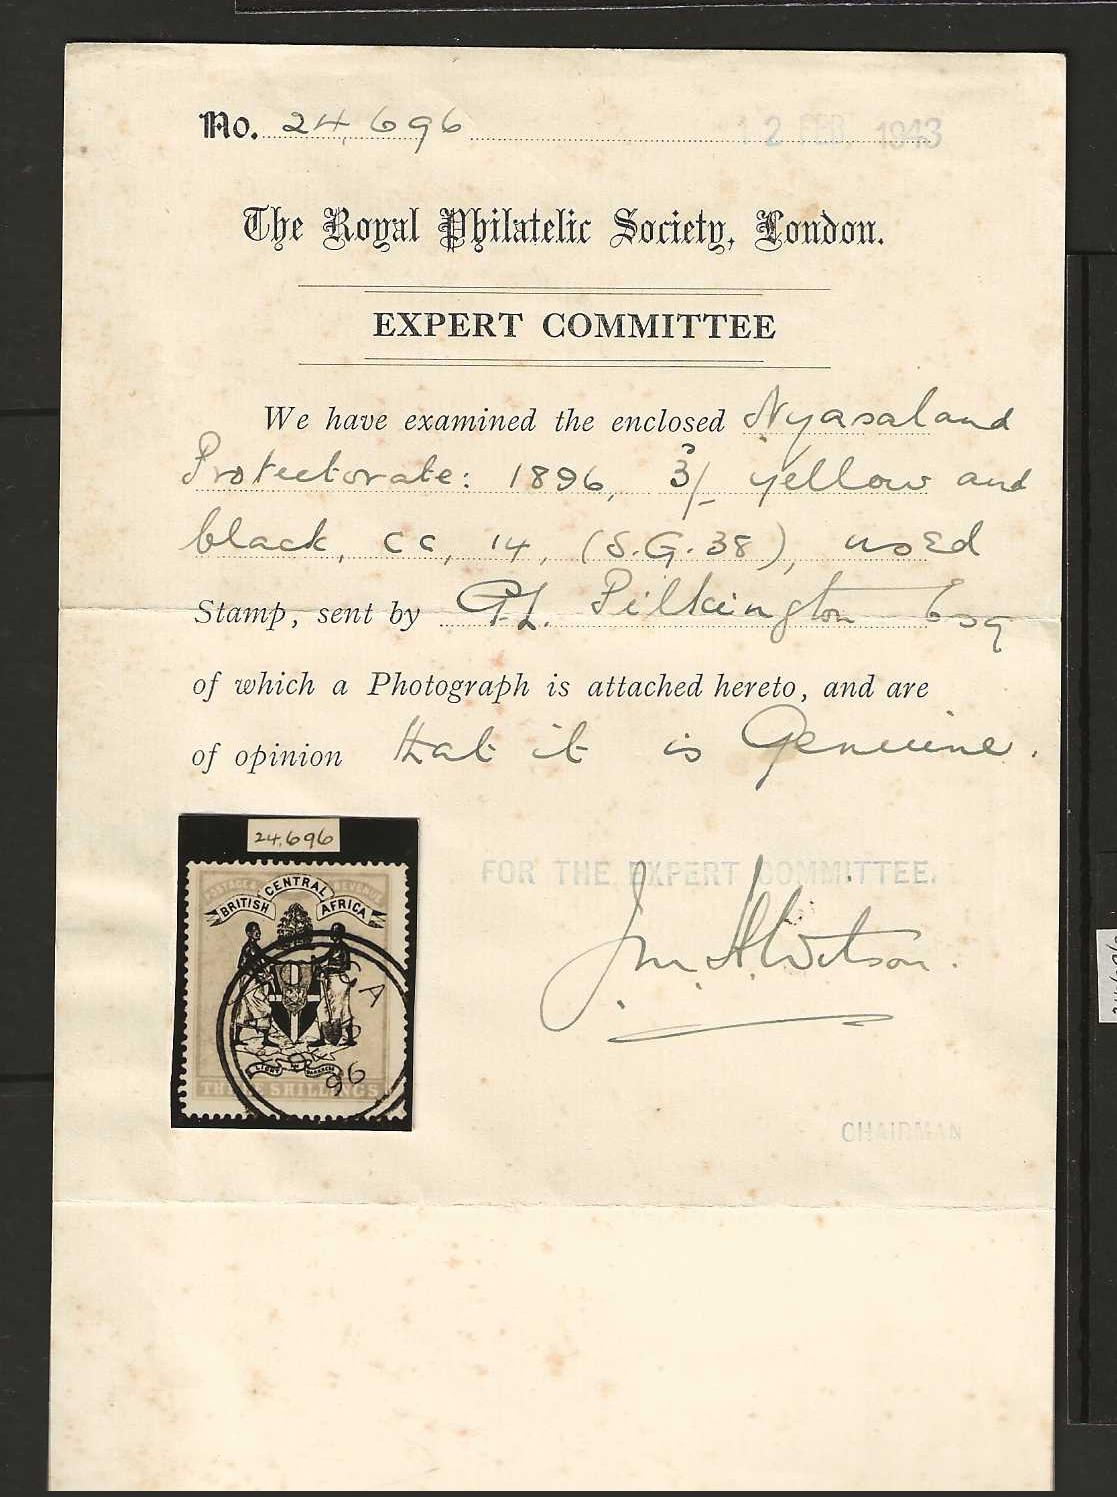 No. 24,696 12 FEB. 1943
The Royal Philatelic Society, London.
EXPERT COMMITTEE
We have examined the enclosed Nyasaland
Protectorate: 1896, 3/- yellow and
black, cc, 14, (S.G. 38), used
Stamp, sent by G.L. Pilkington Esq
of which a Photograph is attached hereto, and are
of opinion that it is Genuine.
24,696
POSTAGE & REVENUE
BRITISH CENTRAL AFRICA
LIGHT IN DARKNESS
96
THREE SHILLINGS
FOR THE EXPERT COMMITTEE.
Jn. H. Wilson.
CHAIRMAN